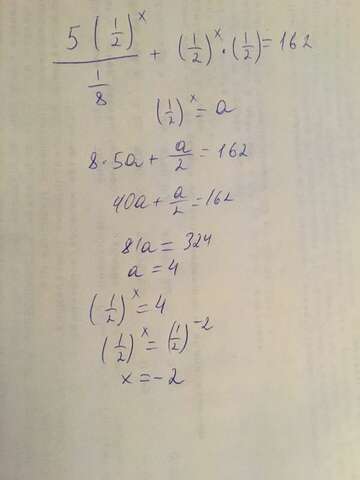 5(1/2)^x / (1/8) + (1/2)^x · (1/2) = 162
(1/2)^x = a
8·5a + a/2 = 162
40a + a/2 = 162
81a = 324
a = 4
(1/2)^x = 4
(1/2)^x = (1/2)^-2
x = -2